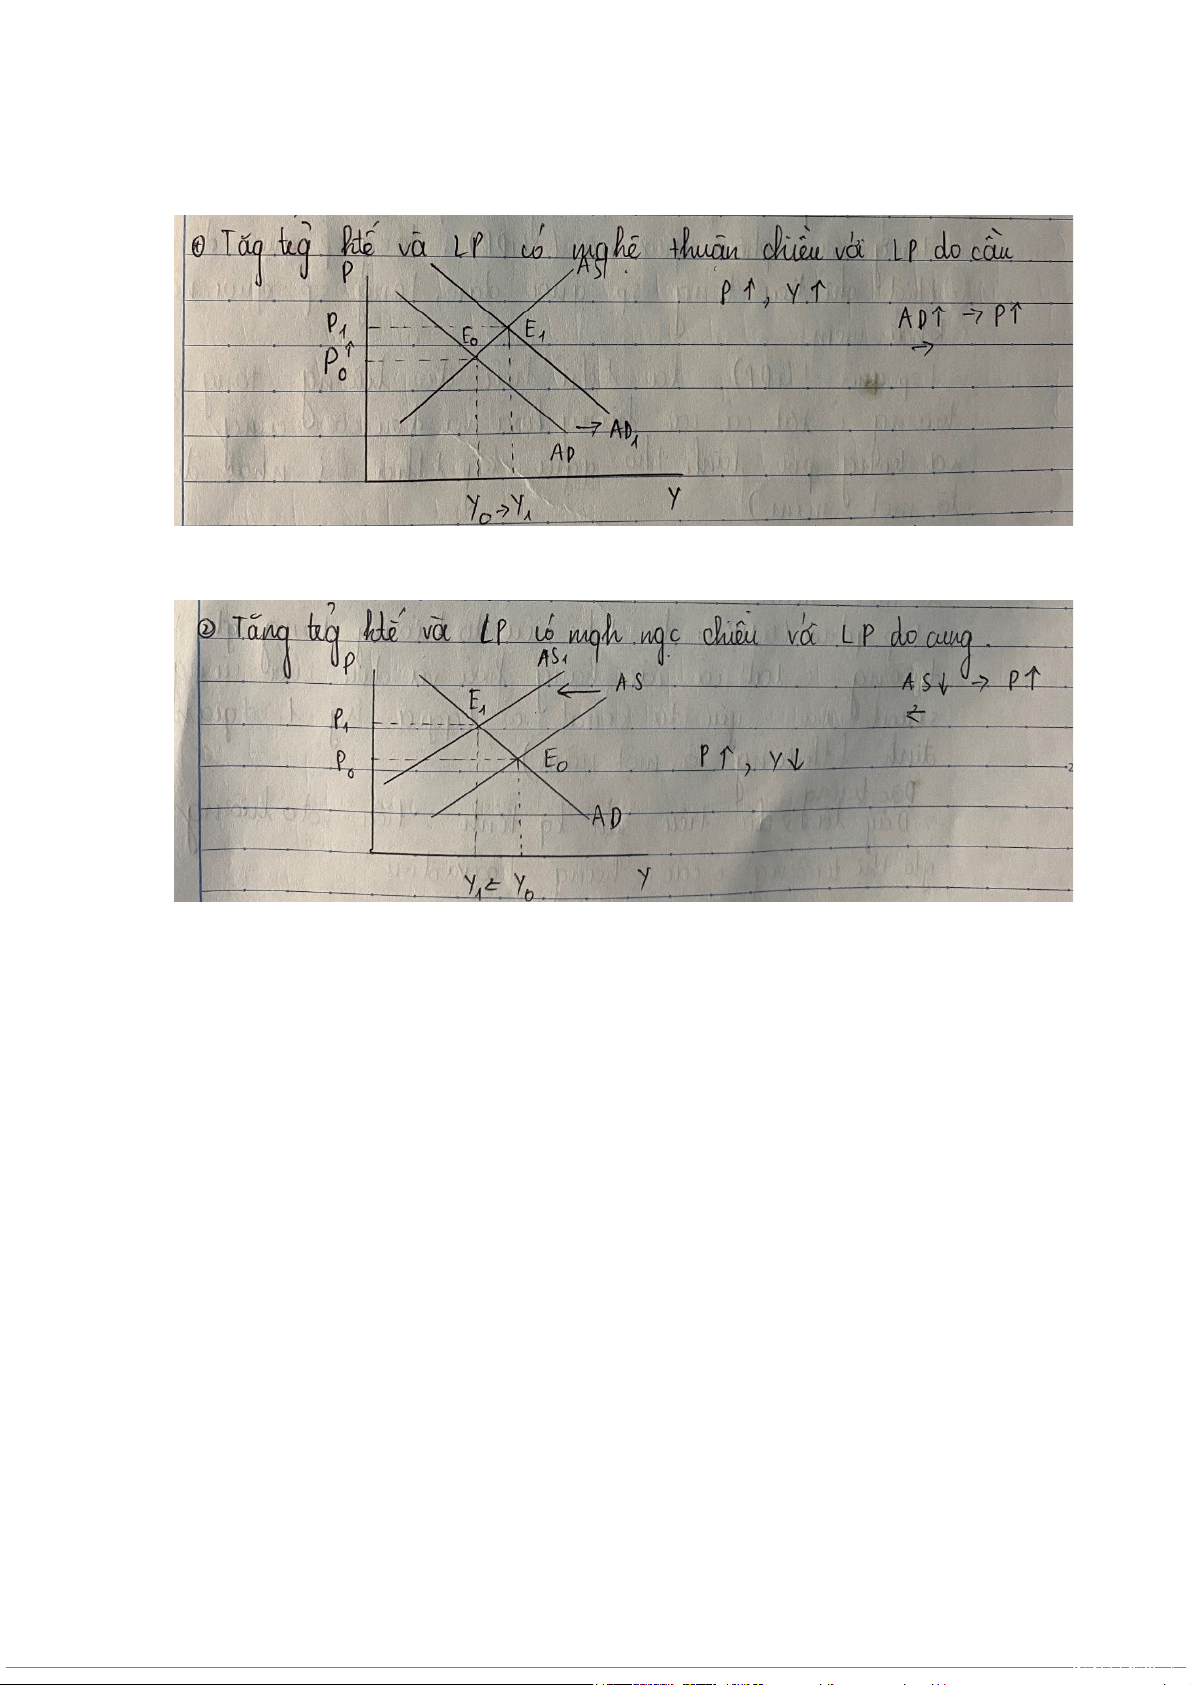 ① Tăg tẻg ktế và LP có mqhệ thuận chiều với LP do cầu
P AS P↑, Y↑
AD↑ → P↑
→
P₁ E₀ E₁
P₀ ↑
→ AD₁
AD
Y₀ → Y₁ Y
② Tăng tẻg ktế và LP có mqh ngc chiều với LP do cung.
P AS₁ AS ← AS↓ → P↑
←
E₁
P₁
P₀ E₀ P↑, Y↓
AD
Y₁ ← Y₀ Y